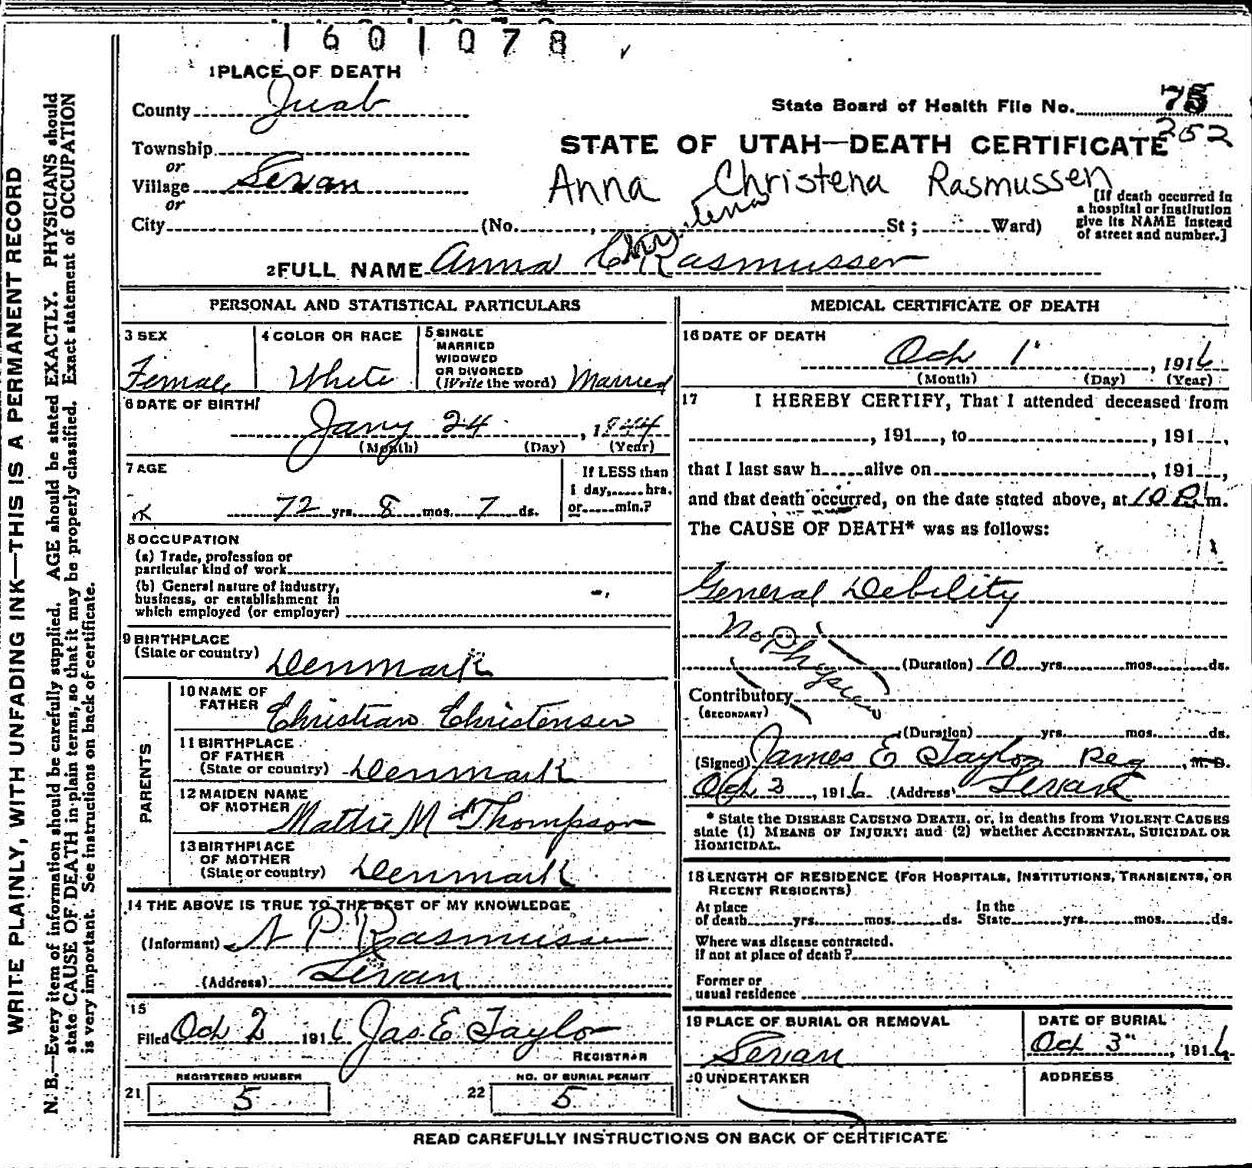 1601078
1 PLACE OF DEATH
County Juab
State Board of Health File No. 75
252
Township
or
Village Levan
or
City
STATE OF UTAH—DEATH CERTIFICATE
Anna Christena Rasmussen
(No. , St; Ward)
[If death occurred in
a hospital or institution
give its NAME instead
of street and number.]
tena
2 FULL NAME Anna Chris Rasmussen
PERSONAL AND STATISTICAL PARTICULARS
3 SEX
Female
4 COLOR OR RACE
White
5 SINGLE
MARRIED
WIDOWED
OR DIVORCED
(Write the word) Married
6 DATE OF BIRTH
Jany 24, 1844
(Month) (Day) (Year)
7 AGE
72 yrs. 8 mos. 7 ds.
If LESS than
1 day, hrs.
or min.?
8 OCCUPATION
(a) Trade, profession or
particular kind of work
(b) General nature of industry,
business, or establishment in
which employed (or employer)
9 BIRTHPLACE
(State or country) Denmark
PARENTS
10 NAME OF
FATHER Christian Christensen
11 BIRTHPLACE
OF FATHER
(State or country) Denmark
12 MAIDEN NAME
OF MOTHER Mattie M Thompson
13 BIRTHPLACE
OF MOTHER
(State or country) Denmark
14 THE ABOVE IS TRUE TO THE BEST OF MY KNOWLEDGE
(Informant) N P Rasmussen
(Address) Levan
15
Filed Oct 2 1916 Jas E Taylor
REGISTRAR
REGISTERED NUMBER
21 5
NO. OF BURIAL PERMIT
22 5
MEDICAL CERTIFICATE OF DEATH
16 DATE OF DEATH
Oct 1", 1916
(Month) (Day) (Year)
17 I HEREBY CERTIFY, That I attended deceased from
, 191 , to , 191 ,
that I last saw h alive on , 191 ,
and that death occurred, on the date stated above, at 10 P.m.
The CAUSE OF DEATH* was as follows:
General Debility
No Physician
(Duration) 10 yrs. mos. ds.
Contributory
(SECONDARY)
(Duration) yrs. mos. ds.
(Signed) James E Taylor Reg, M.D.
Oct 3, 1916 (Address) Levan
* State the DISEASE CAUSING DEATH, or, in deaths from VIOLENT CAUSES
state (1) MEANS OF INJURY; and (2) whether ACCIDENTAL, SUICIDAL OR
HOMICIDAL.
18 LENGTH OF RESIDENCE (FOR HOSPITALS, INSTITUTIONS, TRANSIENTS, OR
RECENT RESIDENTS)
At place
of death yrs. mos. ds.
In the
State yrs. mos. ds.
Where was disease contracted.
if not at place of death?
Former or
usual residence
19 PLACE OF BURIAL OR REMOVAL
Levan
DATE OF BURIAL
Oct 3", 1916
20 UNDERTAKER
ADDRESS
READ CAREFULLY INSTRUCTIONS ON BACK OF CERTIFICATE
WRITE PLAINLY, WITH UNFADING INK—THIS IS A PERMANENT RECORD
N. B.—Every item of information should be carefully supplied. AGE should be stated EXACTLY. PHYSICIANS should
state CAUSE OF DEATH in plain terms, so that it may be properly classified. Exact statement of OCCUPATION
is very important. See instructions on back of certificate.